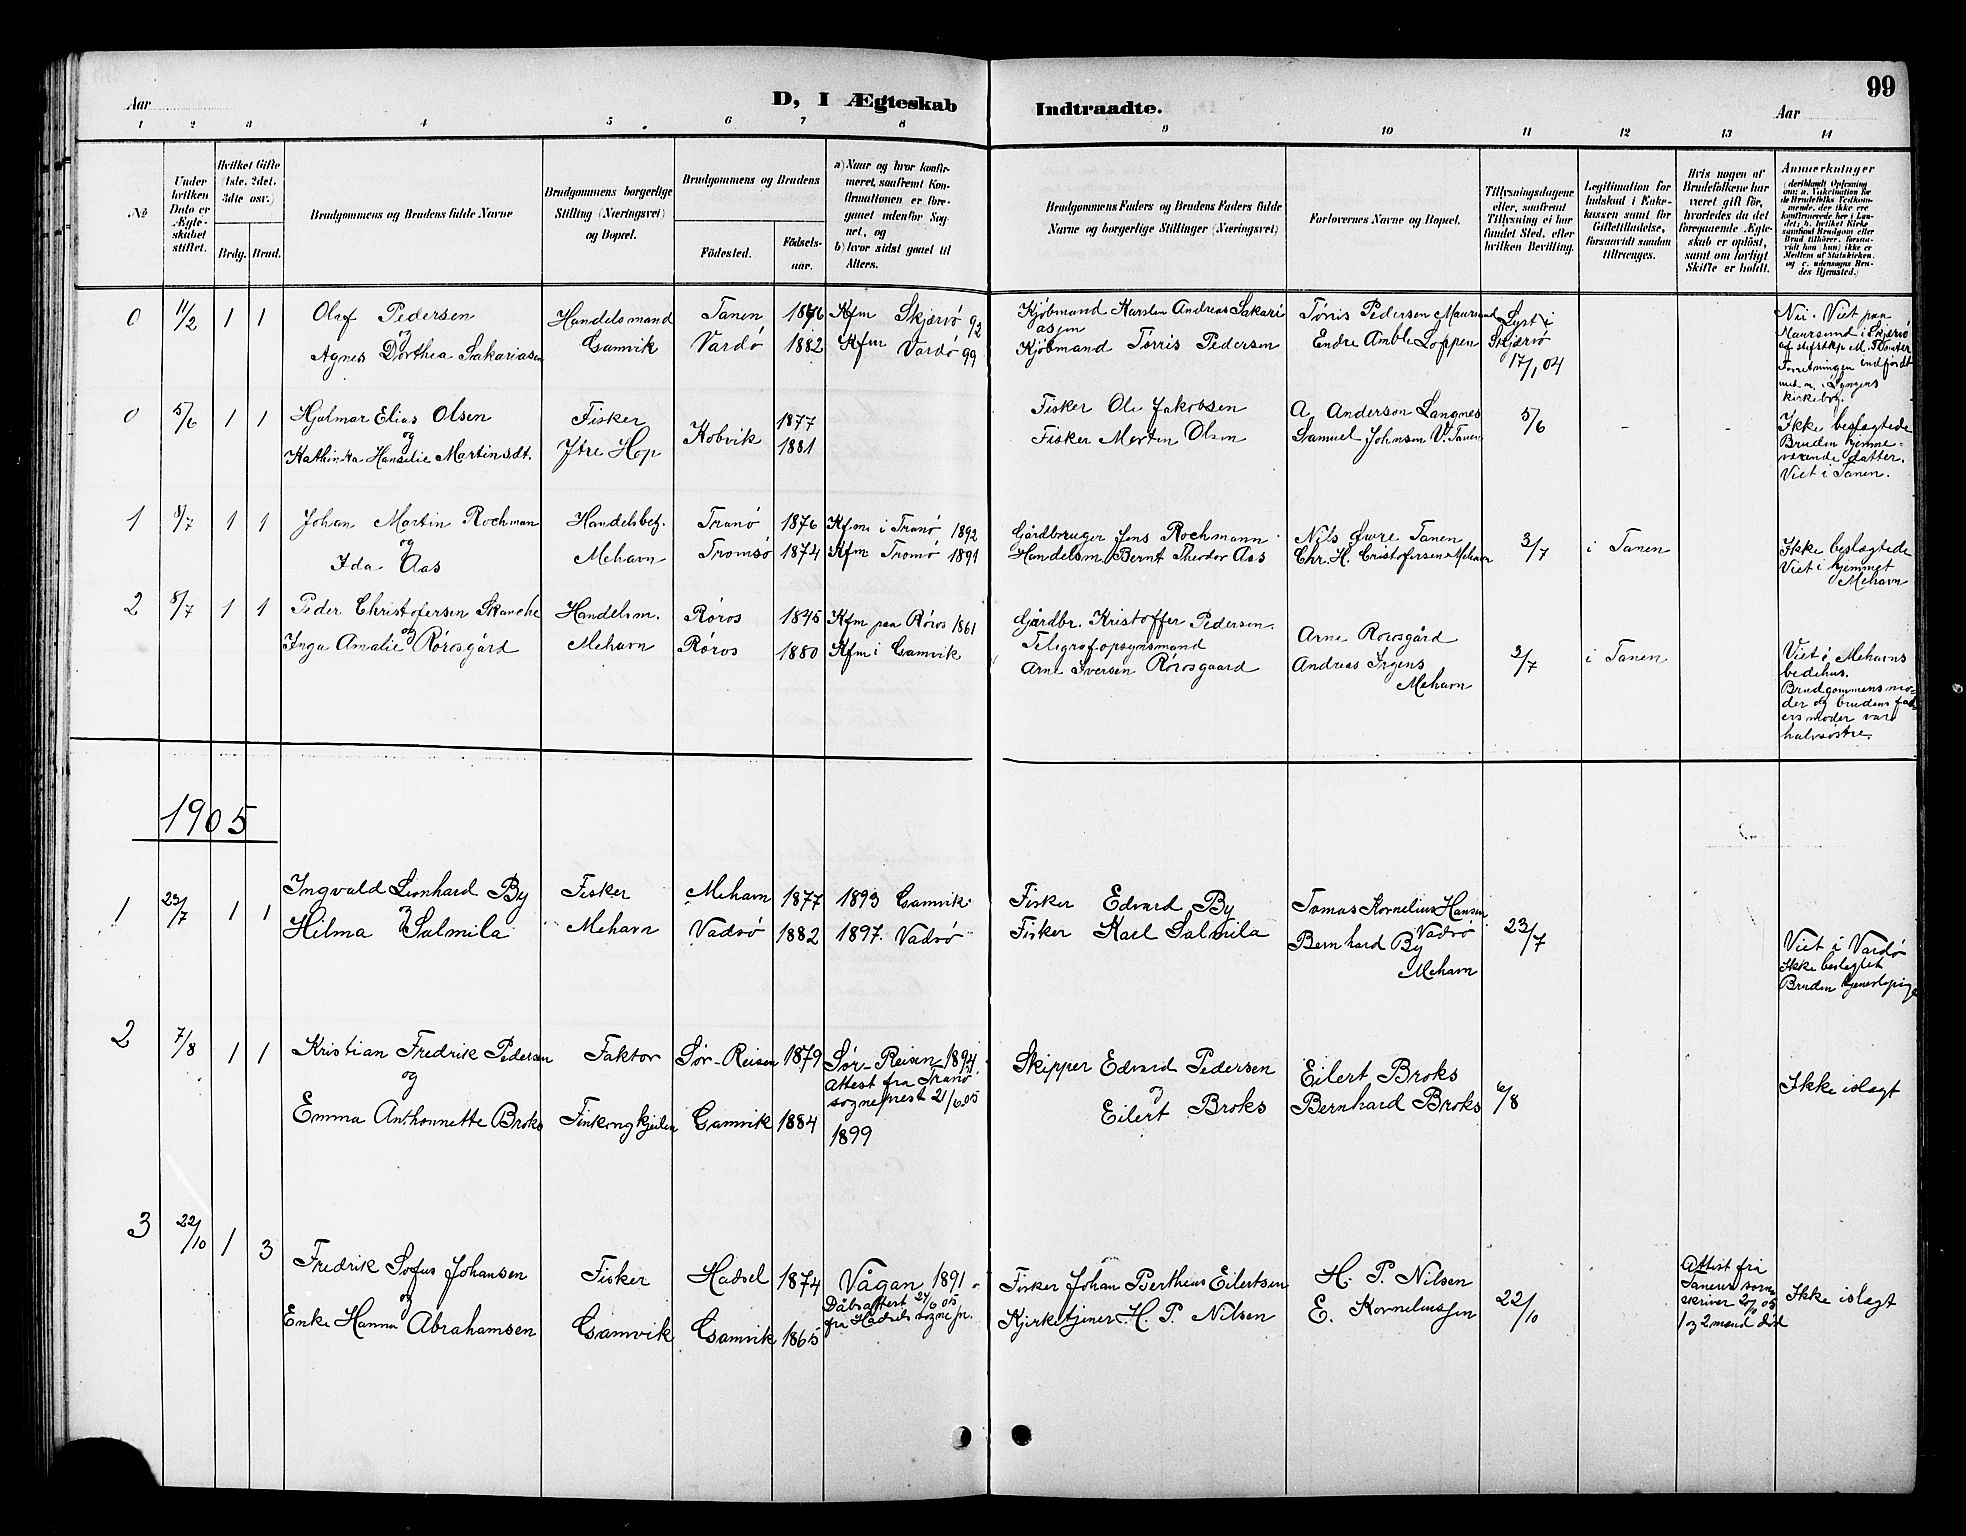 99
Aar
D, I Ægteskab
Indtraadte.
Aar
1 2 3 4 5 6 7 8 9 10 11 12 13 14
No
Under hvilken Dato er Ægteskabet stiftet.
Hvilket Gifte (1ste, 2det, 3die osv.)
Brdg. Brud.
Brudgommens og Brudens fulde Navne
Brudgommens borgerlige Stilling (Næringsvei) og Bopæl.
Brudgommens og Brudens
Födested.
Födselsaar.
a) Naar og hvor konfirmeret, saafremt Konfirmationen er foregaaet udenfor Sognet, og
b) hvor sidst gaaet til Alters.
Brudgommens Faders og Brudens Faders fulde Navne og borgerlige Stillinger (Næringsvei)
Forlovernes Navne og Bopæl.
Tillysningsdagene eller, saafremt Tillysning ei har fundet Sted, efter hvilken Bevilling.
Legitimation for Indskud i Enkekassen samt for Giftetilladelse, forsaavidt saadan tiltrænges.
Hvis nogen af Brudefolkene har været gift før, hvorledes da det foregaaende Ægteskab er opløst, samt om lovligt Skifte er holdt.
Anmærkninger
0 11/2 1 1
Olaf Pedersen
og
Agnes Dorthea Sakariasen
Handelsmand
Gamvik
Tanen 1876 Kfm Skjærvö 92
Vardö 1882 Kfm Vardö 99
Kjöbmand Karsten Andreas Sakariasen
Kjöbmand Törris Pedersen
Törris Pedersen Maursund
Endre Amble Loppen
Lyst i Skjærvö 17/1 04
Nei. Viet paa Maursund i Skjærvö
Forretningen indfördt
kirkebog.
0 5/6 1 1
Hjalmar Elias Olsen
og
Kathinka Hanselie Martinsdt.
Fisker
Ytre Hop
Kobvik
1877
1881
Fisker Ole Jakobsen
Fisker Morten Olsen
A Anderson Langnes
Samuel Johnsen V. Tanen
5/6 - -
Ikke beslægtede
Bruden hjemme-
værende datter.
Viet i Tanen.
1 8/7 1 1
Johan Martin Rochman
og
Ida Aas
Handelsbetj.
Mehavn
Tranö 1876 Kfm i Tranö 1892
Tromsö 1874 Kfm Tromö 1891
Gårdbruger Jens Rochmann
Handelsm Bernt Theodor Aas
Nils Øwre Tanen
Chr. H. Cristofersen Mehavn
3/7 i Tanen
Ikke beslægtede
Viet i hjemmet
Mehavn
2 8/7 1 1
Peder Christofersen Skancke
og
Inga Amalie Rörosgård
Handelsm.
Mehavn
Röros 1845 Kfm paa Röros 1861
Röros 1880 Kfm i Gamvik
Gårdbr. Kristoffer Pedersen.
Telegrafopsynsmand
Arne Iversen Rörosgaard
Arne Rorosgård
Andreas Irgens
Mehavn
3/7 i Tanen
Viet i Mehavns
bedehus.
Brudgommens mo-
der og brudens fad-
ers moder var
halvsöstre.
1905
1 23/7 1 1
Ingvald Leonhard By
og
Hilma Salmila
Fisker
Mehavn
Mehavn 1877 1893 Gamvik
Vadsö 1882 1897. Vadsö
Fisker Edvard By
Fisker Karl Salmila
Tomas Kornelius Hansen
Vadsö
Bernhard By
Mehavn
23/7
Viet i Vardö
Ikke beslegtet
Bruden tjenestepige
2 7/8 1 1
Kristian Fredrik Pedersen
og
Emma Anthonnette Broks
Faktor
Finkongkjeilen
Sör-Reisen 1879
Gamvik 1884
Sör-Reisen 1894
attest fra Tranö
sogneprest 21/6 05
1899
Skipper Edvard Pedersen
og
Eilert Broks
Eilert Broks
Bernhard Broks
6/8
Ikke islagt
3 22/10 1 3
Fredrik Sofus Johansen
og
Enke Hanna Abrahamsen
Fisker
Gamvik
Hadsel 1874
Gamvik 1865
Vågan 1891
Dåbsattest 24/6 05
fra Hadsel sognepr.
Fisker Johan Bertheus Eilertsen
Kirketjener H. P. Nilsen
H. P. Nilsen
E. Korneliussen
22/10
Attest fra
Tanens soren
skriver 20/9 05
1 og 2 mand död
Ikke islagt